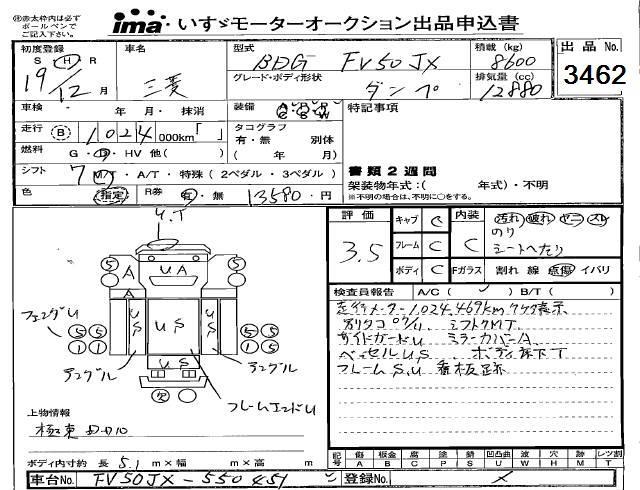 ※赤太枠内は必ず
ボールペンで
ご記入ください。
ima・いすゞモーターオークション出品申込書
初度登録 車名 型式 BDG FV50JX 積載(kg) 8600 出品No. 3462
S H R 19 12月 三菱 グレード・ボディ形状 ダンプ 排気量(cc) 12880
車検 年・月・抹消 装備 A・P・P C・S・W 特記事項
走行 B 1024 000km「 」 タコグラフ 有・無 別体
燃料 G・D・HV 他( ) ( 年 月)
シフト 7 M/T・A/T・特殊(2ペダル・3ペダル)
書類2週間
架装物年式:( 年式)・不明
※不明の場合は、不明に○をする。
色 指定 R券 有・無 13580・円
評価 3.5 キャブ C 内装 C 汚れ 破れ ヤニ スレ
フレーム C のり シートへたり
ボディ C Fガラス 割れ 線 点傷 イバリ
検査員報告 A/C( ) B/T( )
走行メーター1,024,469km
シフト7MT.
サイドガードU ミラーカバーA.
ベッセルUS. ボディ床下T
フレームS,U
U.T
5 5
A UA A
A
フェンダーU
5 5 1 1 US US US 5 5 1 1
アングル US アングル
欠
フレームエンドU
上物情報
極東
ボディ内寸約 長 5.1 m×幅 m×高 m
記号 傷 A 板金 B 腐 C 塗 P 錆 S 凹凸曲 U 波 W 穴 H 跡 M レンズ割 T
車台No. FV50JX-550451 登録No.